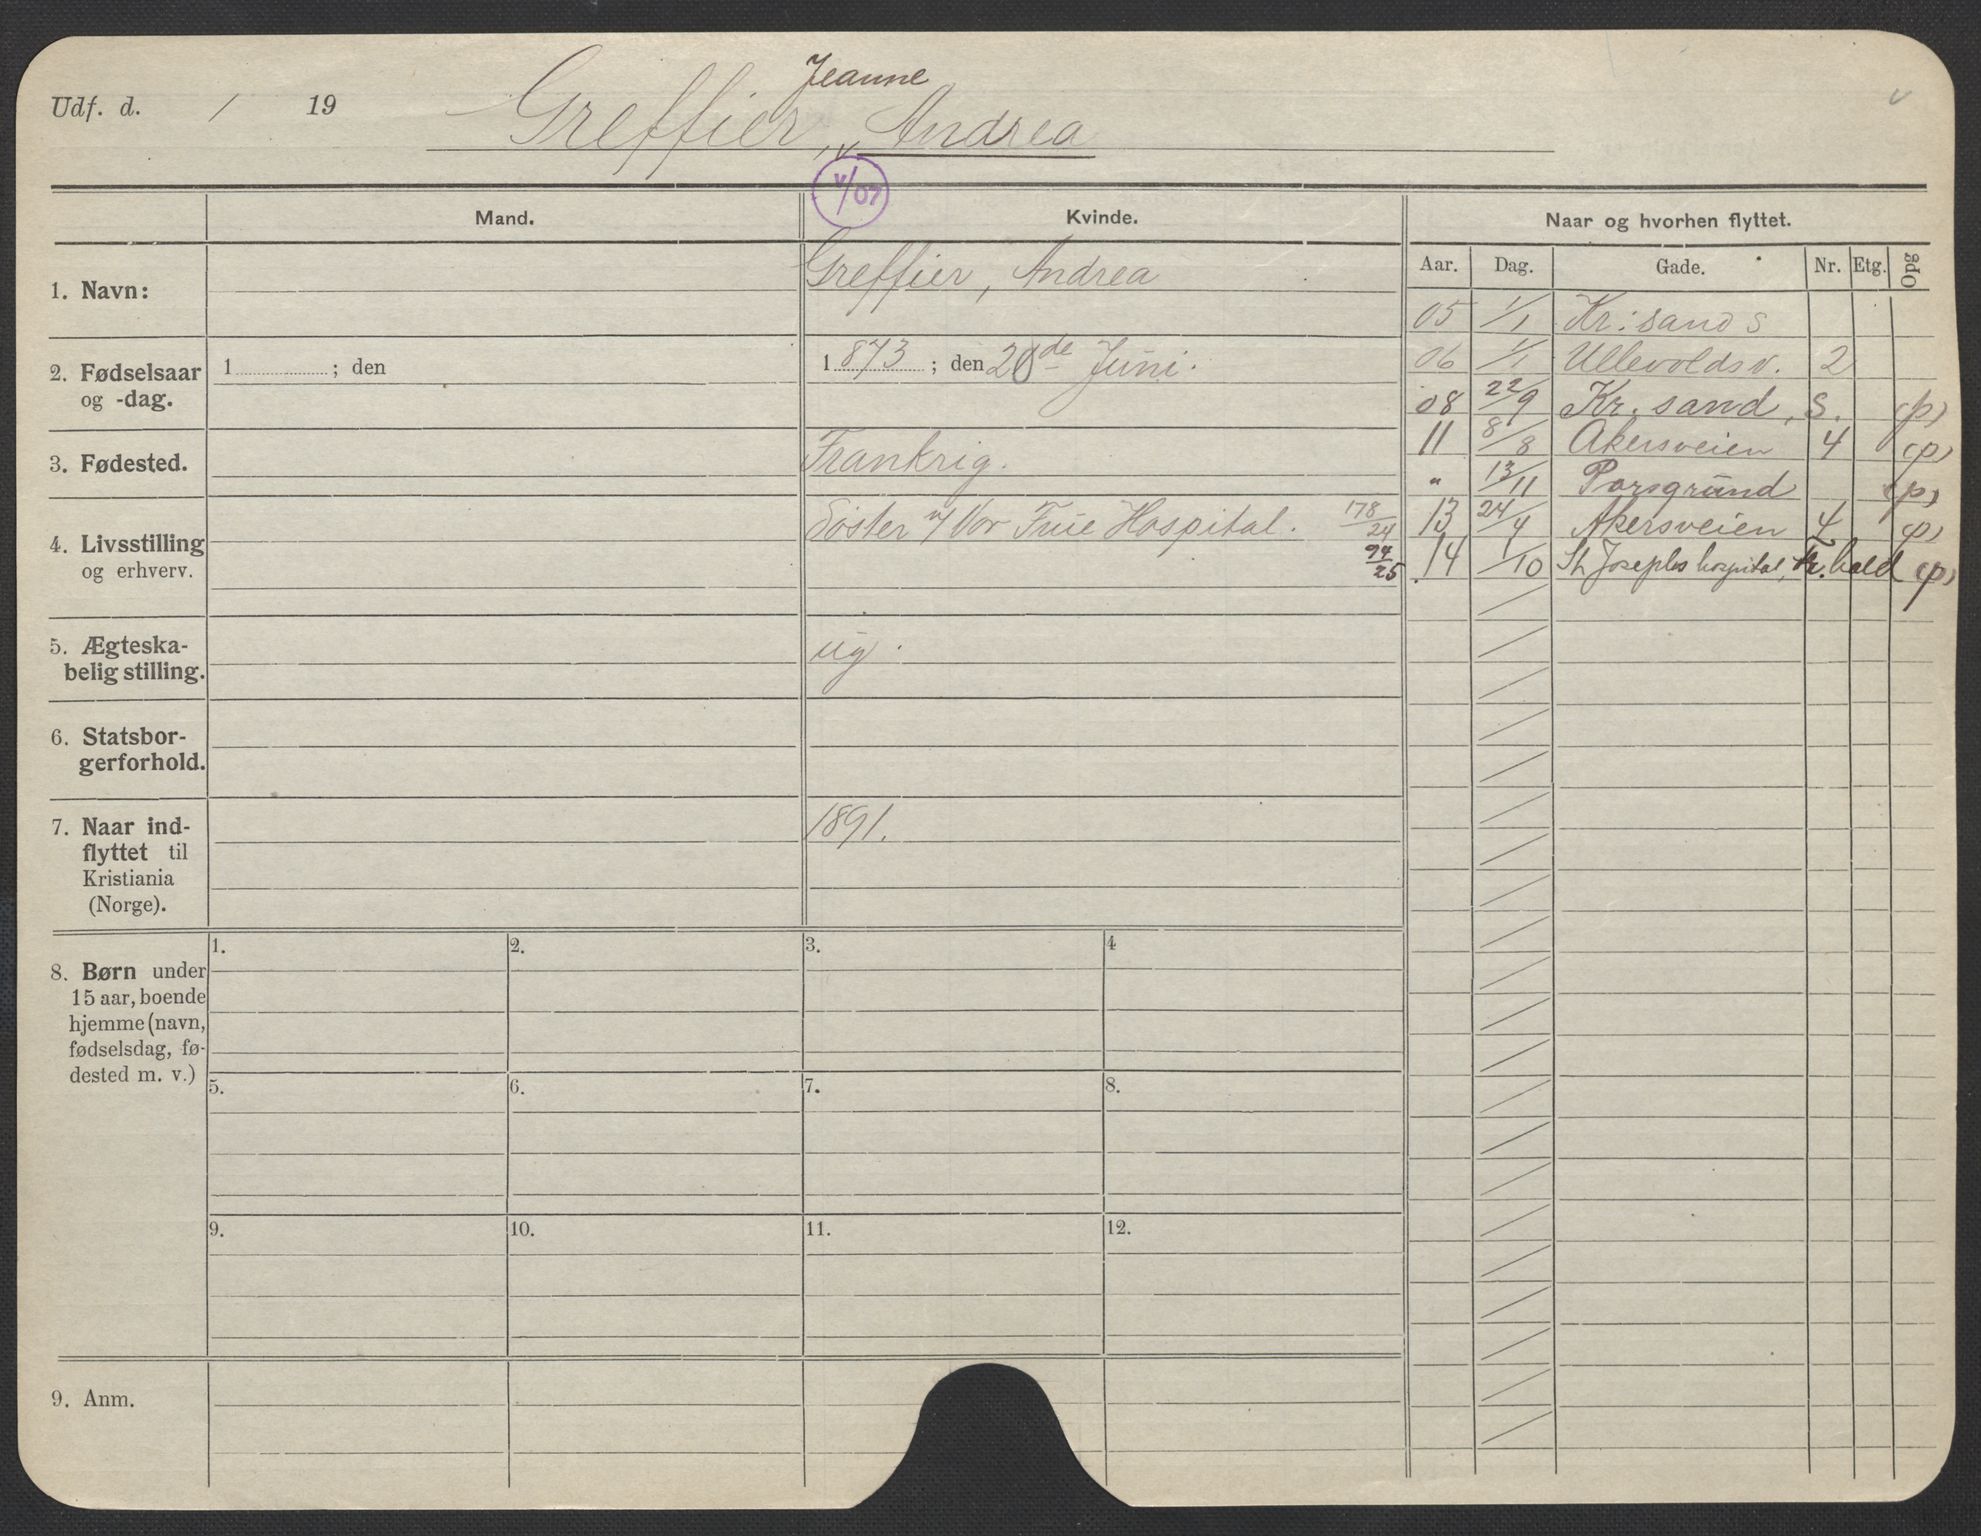 Udf. d. / 19
Jeanne
Greffier, Andrea
v/07
Mand.
Kvinde.
Naar og hvorhen flyttet.
Aar. Dag. Gade. Nr. Etg. Opg
1. Navn:
Greffier, Andrea
2. Fødselsaar
og -dag.
1 ; den
1 873 ; den 20de Juni.
3. Fødested.
Frankrig.
4. Livsstilling
og erhverv.
Søster v/ Vor Frue Hospital.
178/24
94/25
5. Ægteska-
belig stilling.
ug.
6. Statsbor-
gerforhold.
7. Naar ind-
flyttet til
Kristiania
(Norge).
1891.
05 1/1 Kr: sand S
06 1/1 Ullevoldsv. 2
08 22/9 Kr. sand, S. (p)
11 8/8 Akersveien 4 (p)
" 13/11 Porsgrund (p)
13 24/4 Akersveien 4 (p)
14 1/10 St Josephs hospital, Fr. hald (p)
8. Børn under
15 aar, boende
hjemme (navn,
fødselsdag, fø-
dested m. v.)
1. 2. 3. 4
5. 6. 7. 8.
9. 10. 11. 12.
9. Anm.